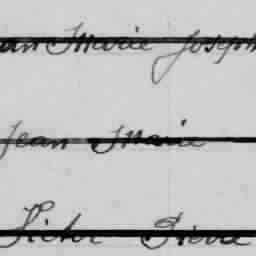 Jean Marie Joseph
Jean Marie
Victor Pierre